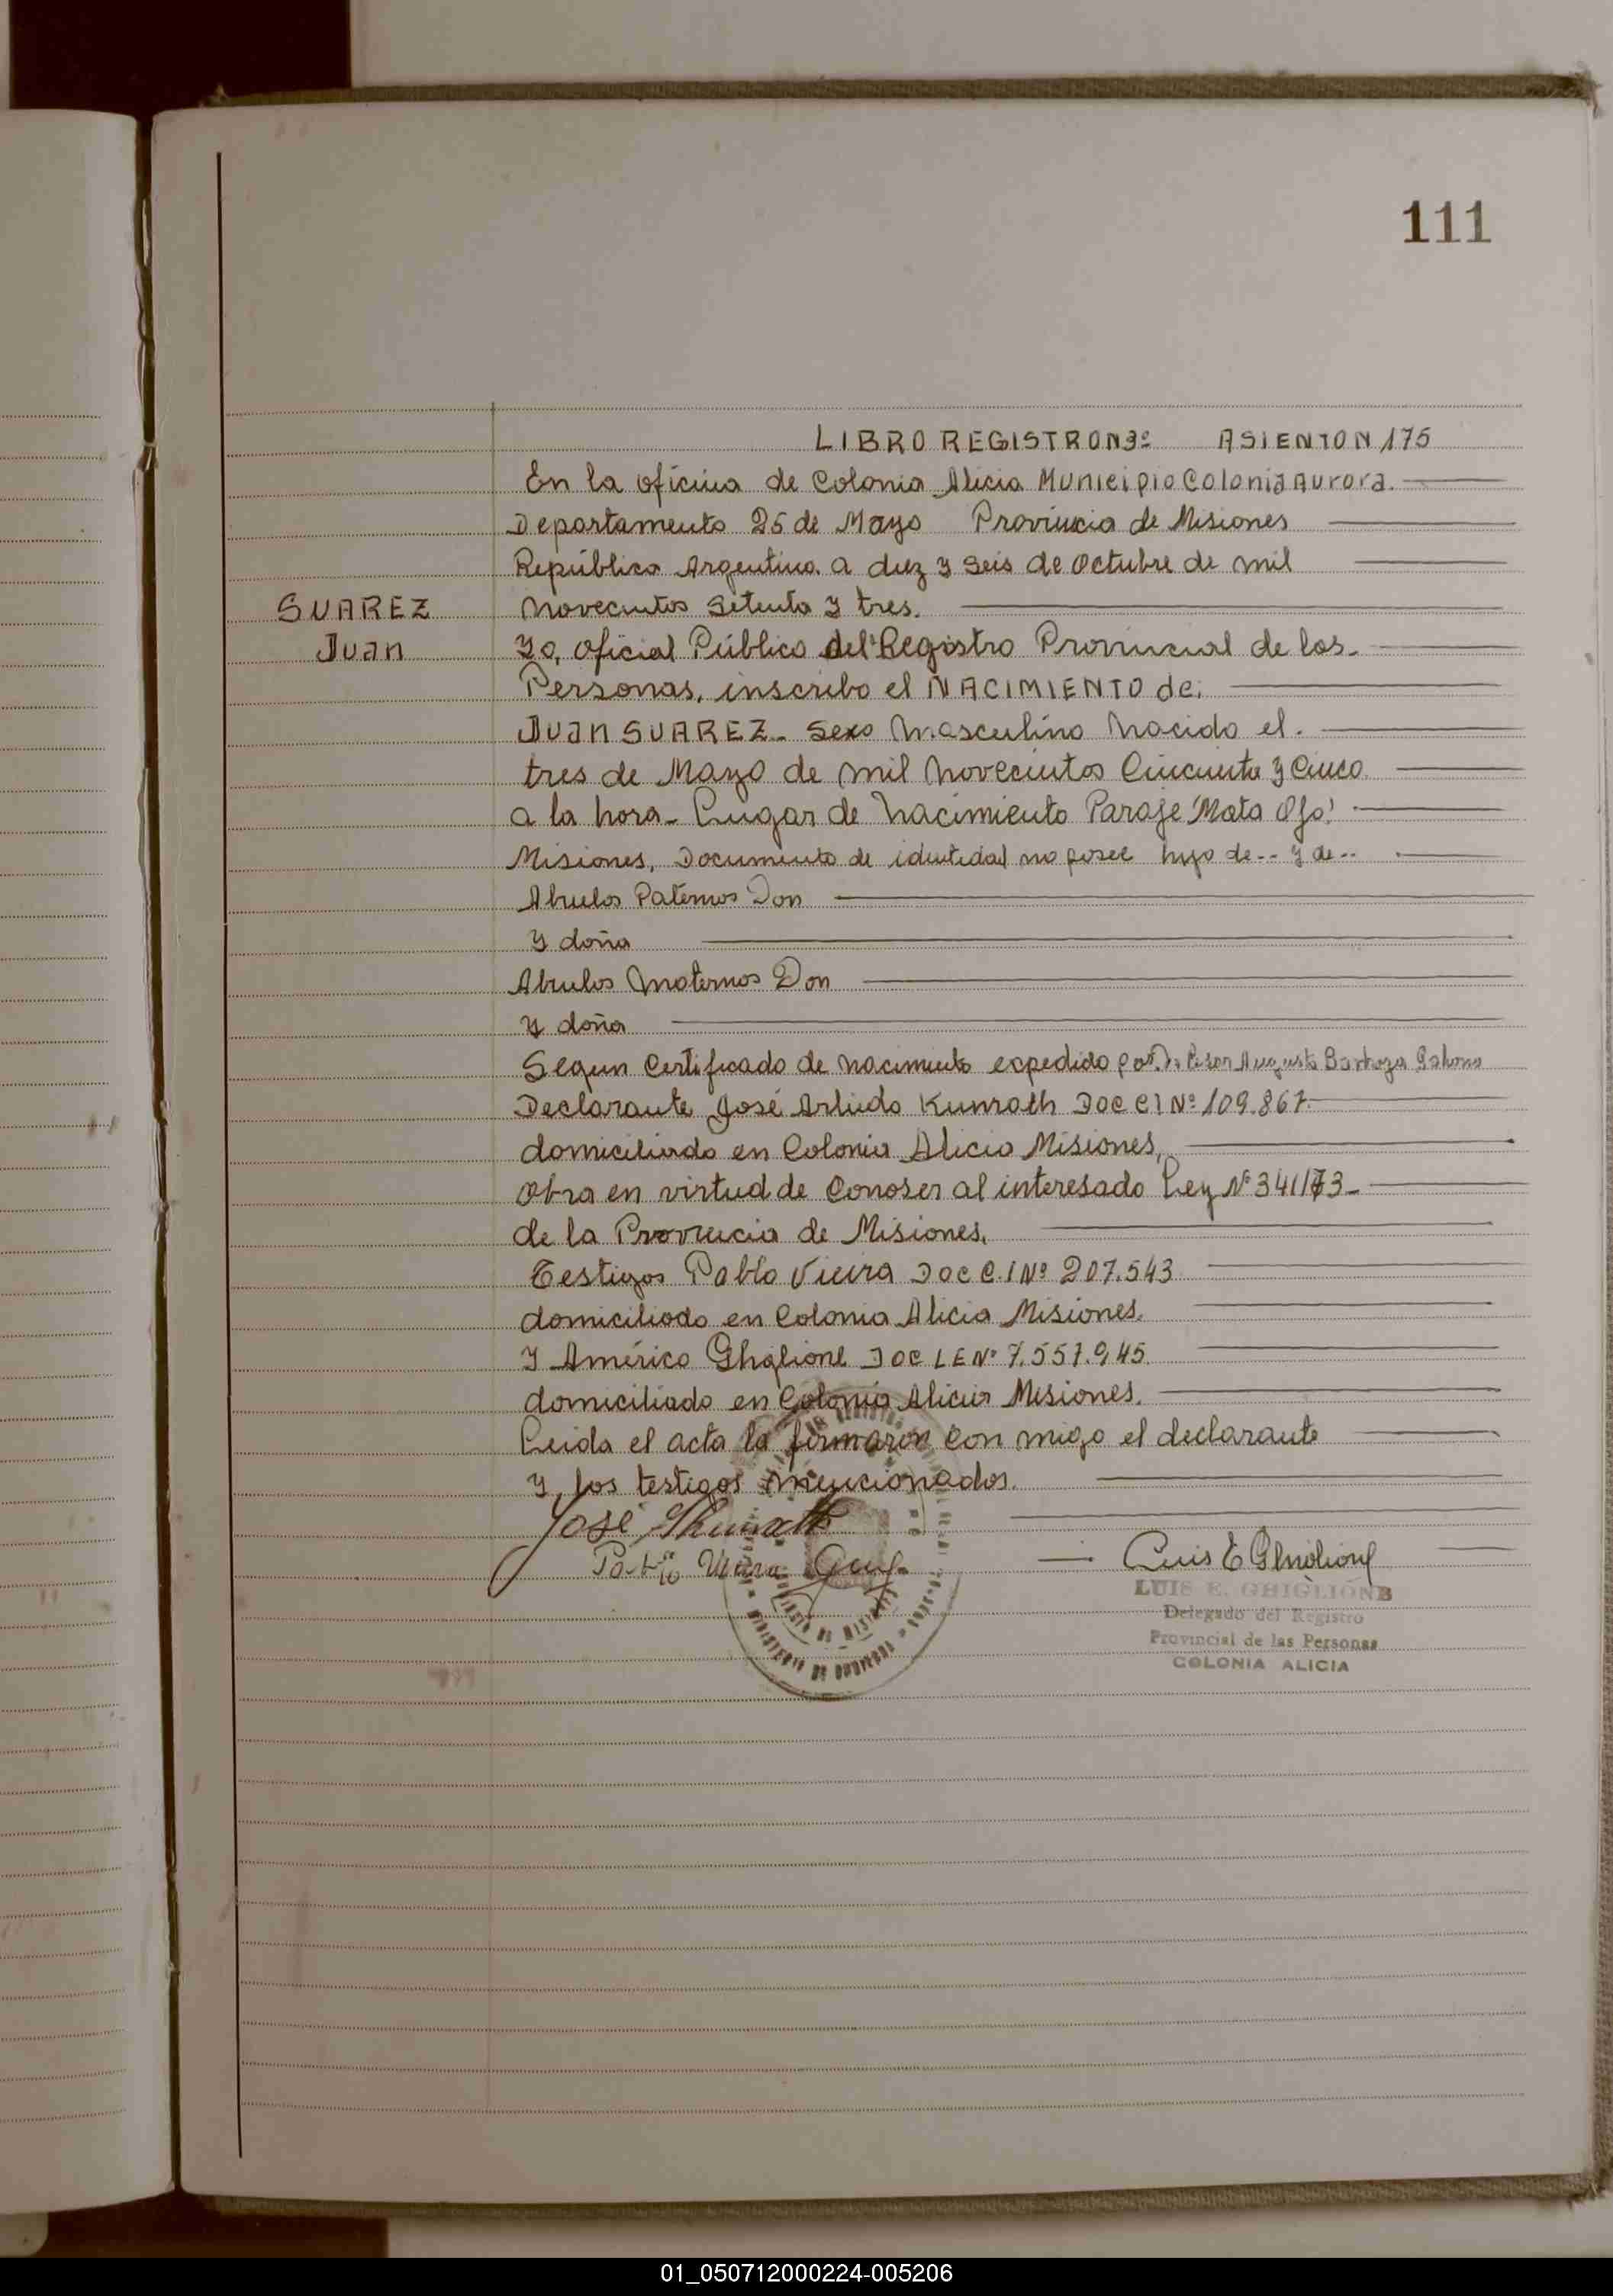 111
LIBRO REGISTRO N 3º ASIENTO N 175
En la oficina de Colonia Alicia Municipio Colonia Aurora.
Departamento 25 de Mayo Provincia de Misiones
República Argentina. a diez y seis de Octubre de mil
SUAREZ novecientos setenta y tres.
Juan Yo, Oficial Público del Registro Provincial de las.
Personas, inscribo el NACIMIENTO de:
JUAN SUAREZ_ Sexo Masculino Nacido el.
tres de Mayo de mil Novecientos Cincuenta y Cinco
a la hora_ Lugar de Nacimiento Paraje "Mata Ojo"
Misiones, Documento de identidad no posee hijo de -- y de --
Abuelos Paternos Don
y doña
Abuelos Maternos Don
y doña
Segun Certificado de nacimiento expedido por Augusto Barboza
Declarante José Arlindo Kunrath DOC CI Nº 109.867.
domiciliado en Colonia Alicia Misiones,
Obra en virtud de Conoser al interesado Ley Nº 341/73_
de la Provincia de Misiones.
Testigos Pablo Vieira DOC C.I Nº 207.543
domiciliado en Colonia Alicia Misiones.
y Américo Ghiglione DOC LE Nº 7.557.945
domiciliado en Colonia Alicia Misiones.
Leida el acta la firmaron con migo el declarante
y los testigos mencionados.
José Kunrath
Luis E Ghiglione
LUIS E. GHIGLIONE
Delegado del Registro
Provincial de las Personas
COLONIA ALICIA
01_050712000224-005206